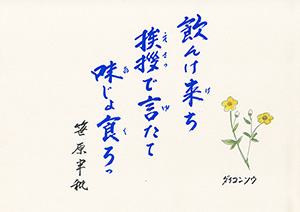 飲んけ来ち
挨拶で言たて
味じょ食ろっ
笹原半執
ダイコンソウ